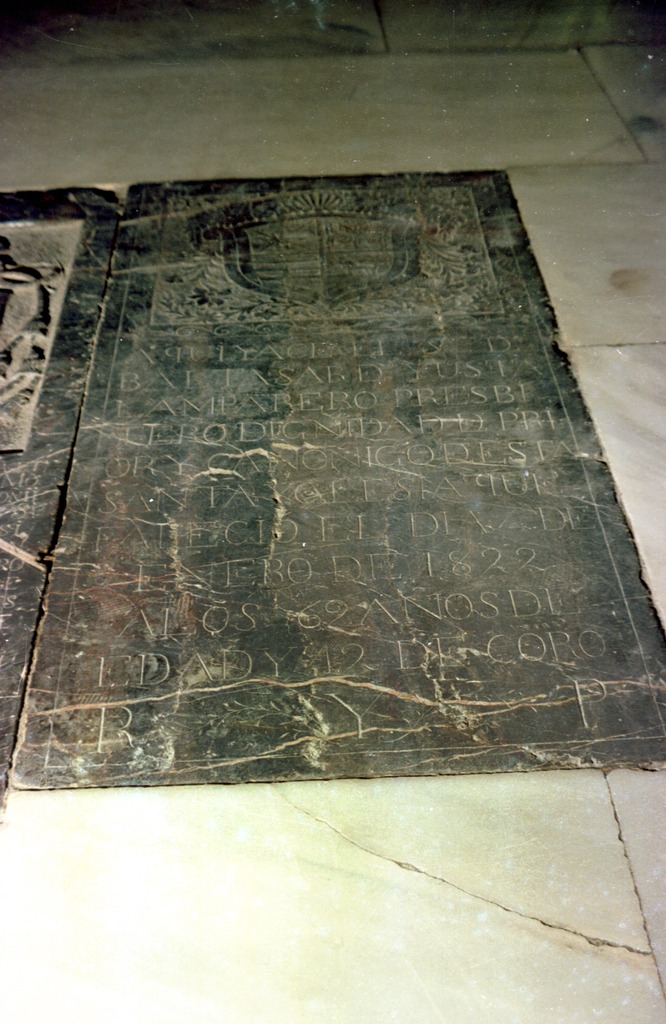 AQUI YACE EL S. D.
BALTASAR D YUSTA
LAMPARERO PRESBI
TERO DIGNIDAD D PRI
OR Y CANONIGO DE ESTA
SANTA YGLESIA QUE
FALECIO EL DIA DE
ENERO DE 1822
A LOS 62 AÑOS DE
EDAD Y 42 DE CORO
R Y P